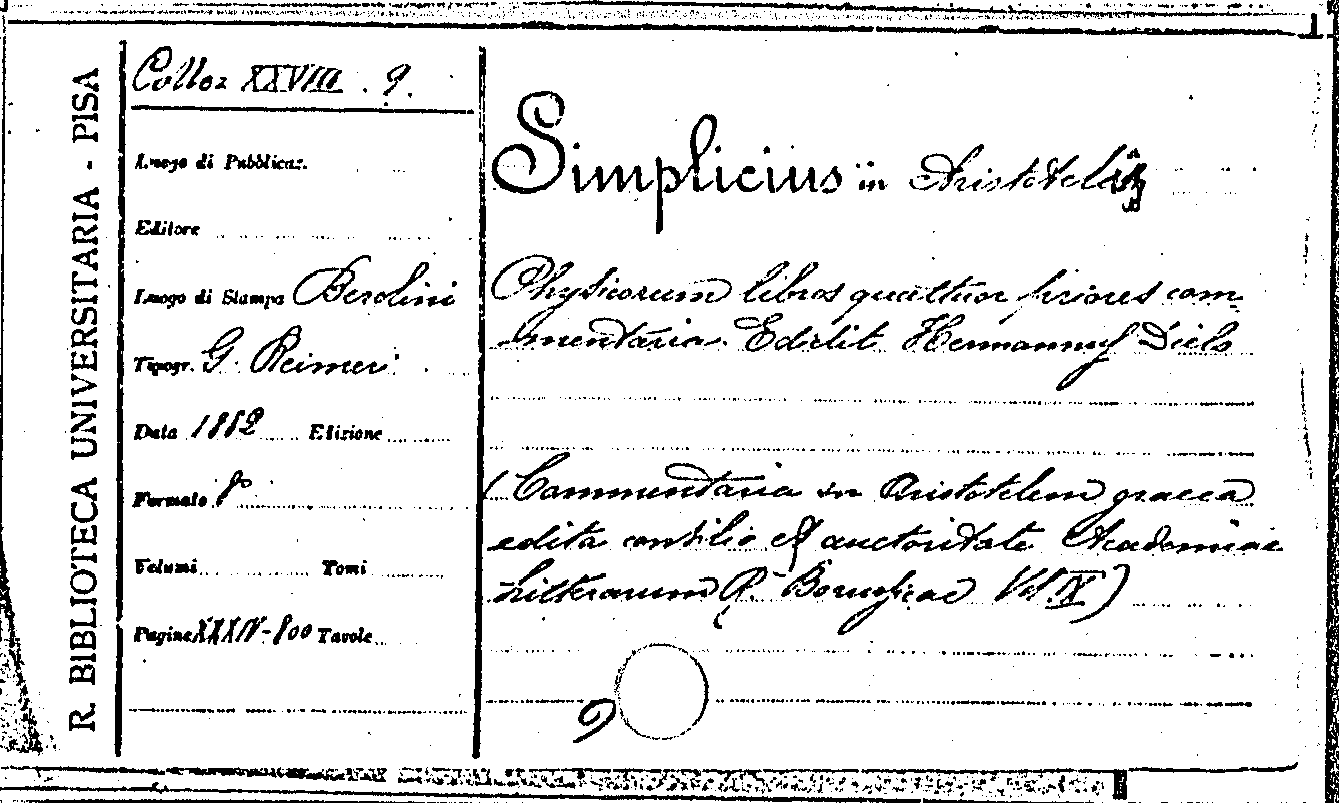 R. BIBLIOTECA UNIVERSITARIA - PISA
Colloz XXVIII. 9.
Luogo di Pubblicaz.
Editore
Luogo di Stampa Berolini
Tipogr. G. Reimeri
Data 1882 Edizione
Formato 8°
Volumi Tomi
Pagine XXXIV-800 Tavole
Simplicius in Aristotelis
Physicorum libros quattuor priores com-
mentaria. Edidit Hermannus Diels
(Commentaria in Aristotelem graeca
edita consilio et auctoritate Academiae
Litterarum R. Borussicae Vol IX)
9